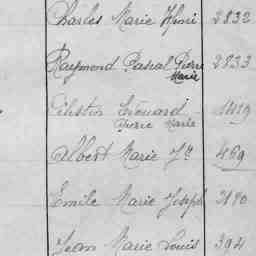 Charles Marie Henri 2832
Raymond Pascal Pierre 2833
Marie
Célestin Edouard 1419
Pierre Marie
Albert Marie Jh 469
Emile Marie Joseph 3190
Jean Marie Louis 394